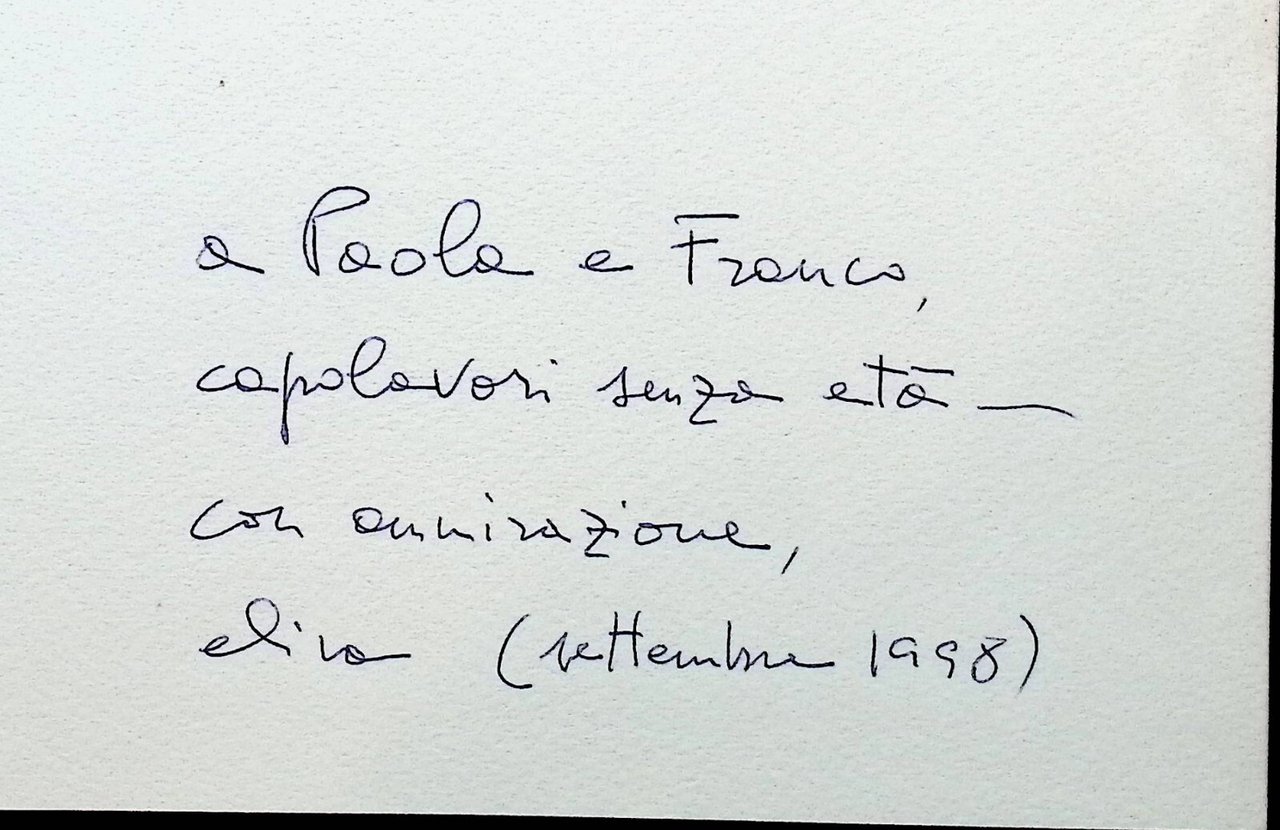 a Paola e Franco,
capolavori senza età —
con ammirazione,
elisa (settembre 1998)